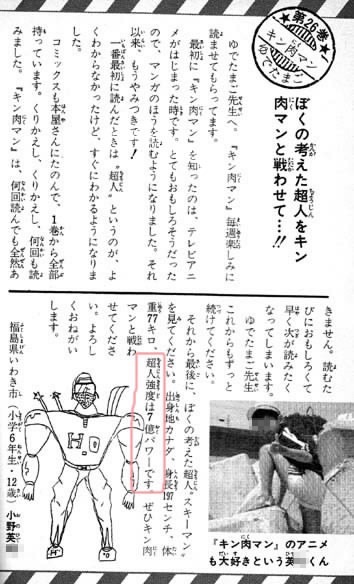 ★第26巻★
キン肉マン
ゆでたまご
ぼくの考えた超人をキン
肉マンと戦わせて…!!
ゆでたまご先生へ。『キン肉マン』毎週楽しみに
読ませてもらってます。
最初に『キン肉マン』を知ったのは、テレビアニ
メがはじまった時です。とてもおもしろそうだった
ので、マンガのほうを読むようになりました。それ
以来、もうやみつきです!
一番最初に読んだときは〝超人〟というのが、よ
くわからなかったけど、すぐにわかるようになりま
した。
コミックスも本屋さんにたのんで、1巻から全部
持っています。くりかえし、くりかえし、何回も読
みました。『キン肉マン』は、何回読んでも全然あ
きません。読むた
びにおもしろくて
早く次が読みたく
なってしまいます。
ゆでたまご先生
これからもずっと
続けてください。
それから最後に、ぼくの考えた超人〝スキーマン〟
を見てください。出身地カナダ、身長197センチ、体
重77キロ、超人強度は7億パワーです。ぜひキン肉
マンと戦わ
せてくださ
い。よろし
くおねがい
します。
福島県いわき市(小学6年生・12歳) 小野英
『キン肉マン』のアニメ
も大好きという英 くん